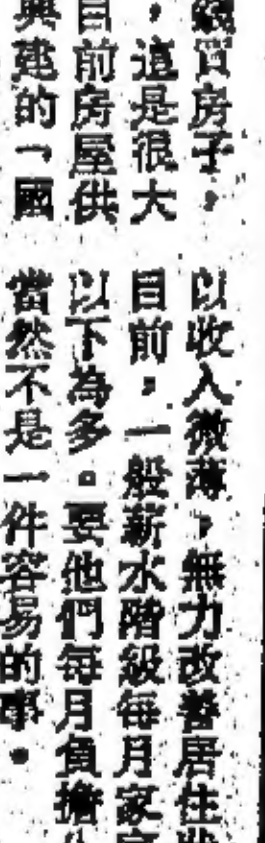 買房子，
，這是很大
目前房屋供
興建的「國
以收入微薄，無力改善居住
目前，一般薪水階級每月家
以下為多。要他們每月負擔
當然不是一件容易的事。